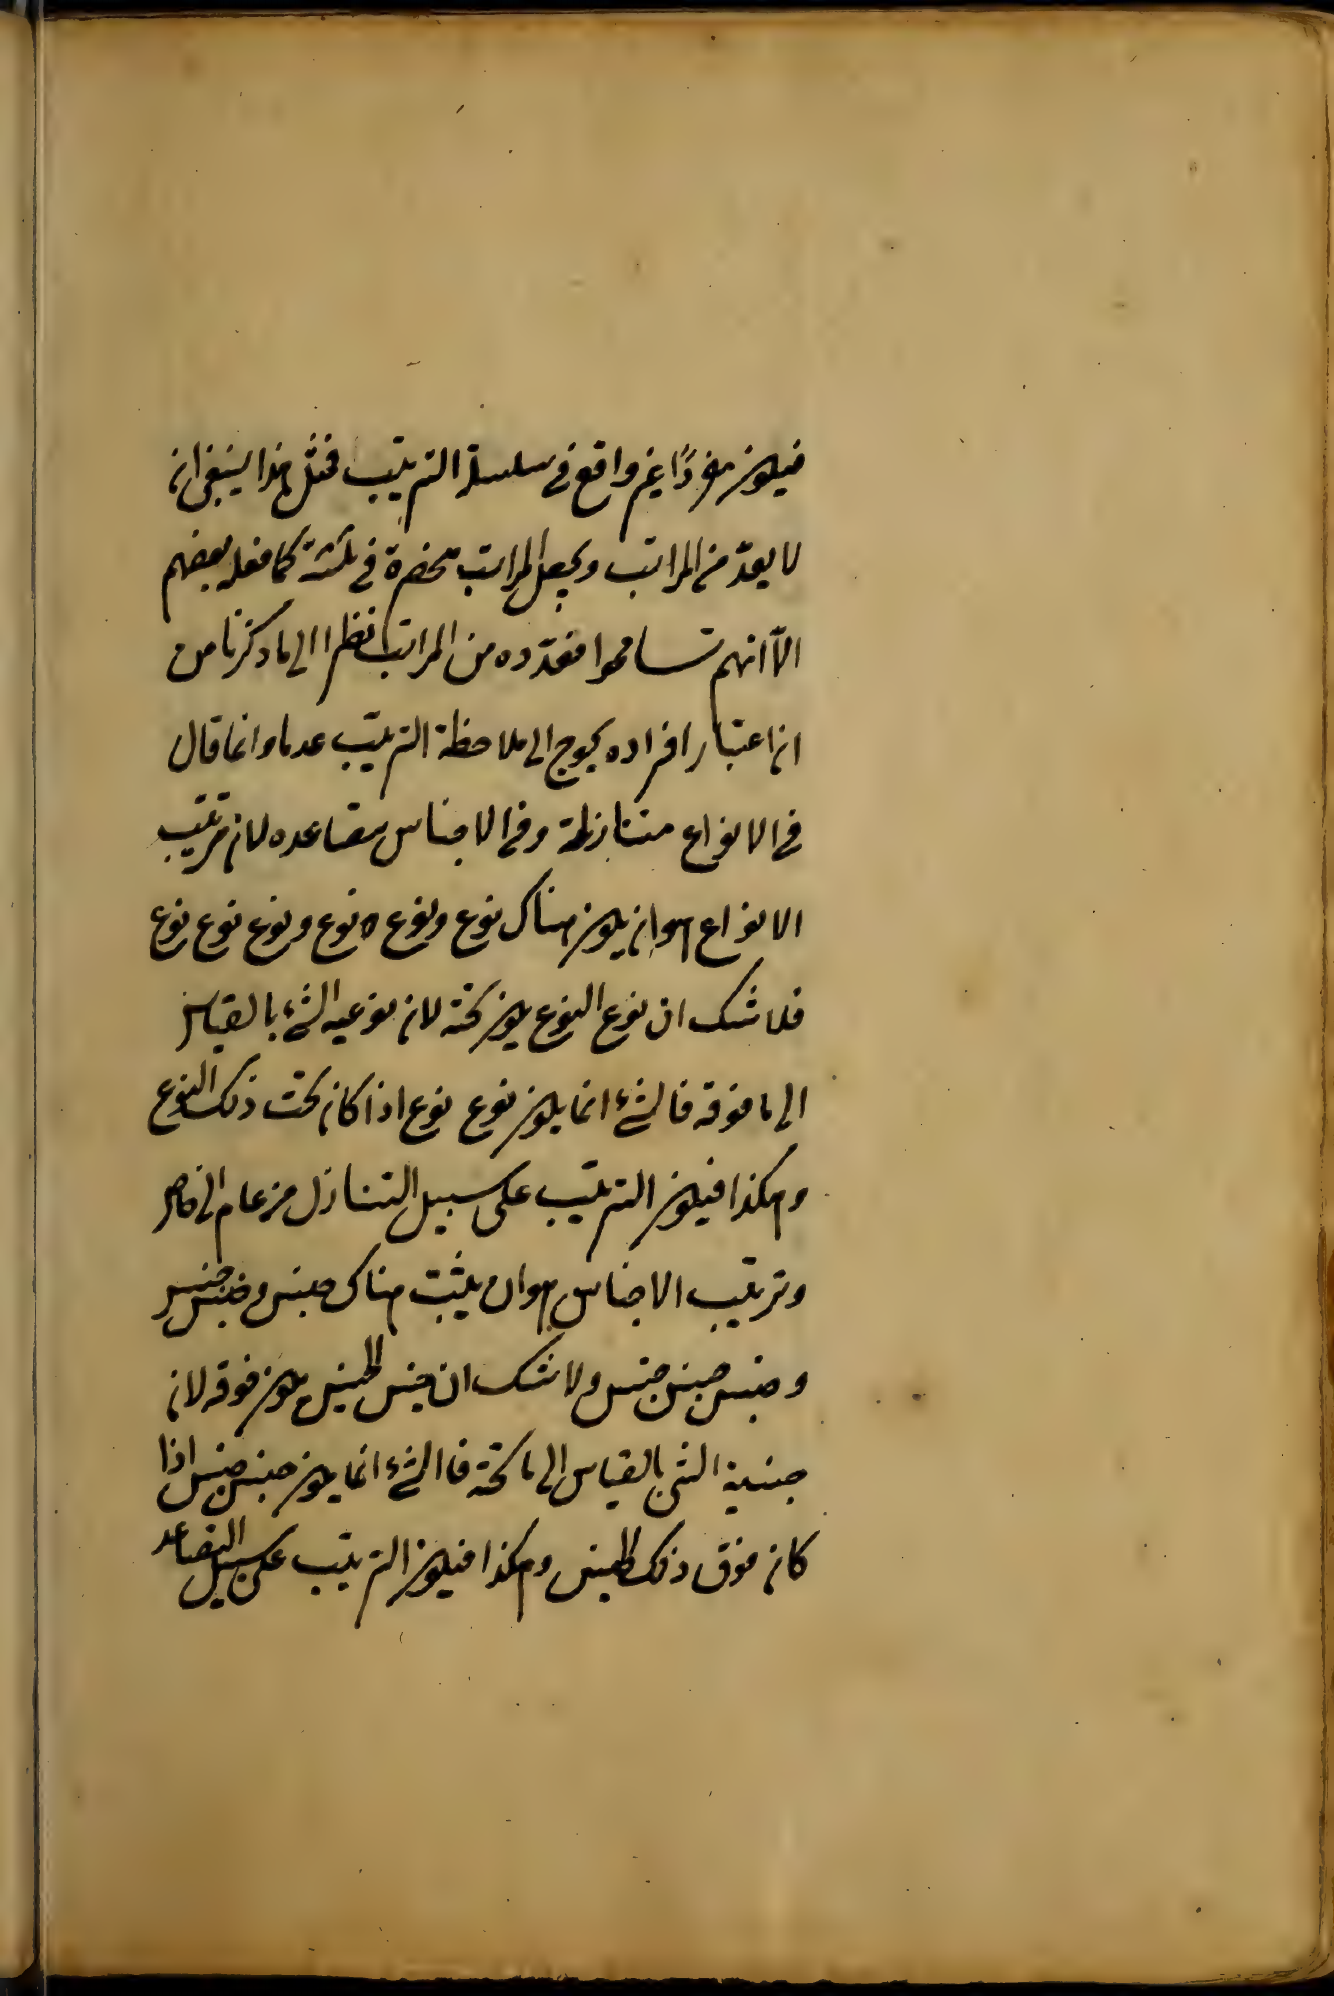 فيكون مفردًا غير واقع في سلسلة الترتيب فمثل هذا ينبغي ان
لا يعدّ من المراتب ويجعل المراتب منحصرة في ثلثة كما فعله بعضهم
الّا انهم تسامحوا فعدّوه من المراتب نظرا الى ما ذكرنا من
ان اعتبار افراده يحوج الى ملاحظة الترتيب عدما وانما قال
في الانواع متنازلة وفي الاجناس متصاعده لان ترتيب
الانواع هو ان يكون هناك نوع ونوع نوع ونوع نوع نوع
فلا شك ان نوع النوع يكون تحته لان نوعية الشئ بالقياس
الى ما فوقه فالشئ انما يكون نوع نوع اذا كان تحت ذلك النوع
وهكذا فيكون الترتيب على سبيل التنازل من عام الى خاص
وترتيب الاجناس هو ان يثبت هناك جنس وجنس جنس
وجنس جنس جنس ولا شك ان جنس الجنس يكون فوقه لان
جنسية الشئ بالقياس الى ما تحته فاالشئ انما يكون جنس جنس اذا
كان فوق ذلك الجنس وهكذا فيكون الترتيب على سبيل التصاعد